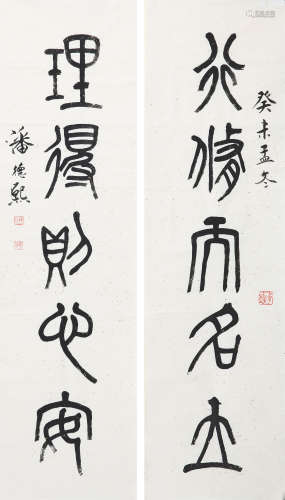 行脩而名立
癸未孟冬
理得則心安
潘德熙